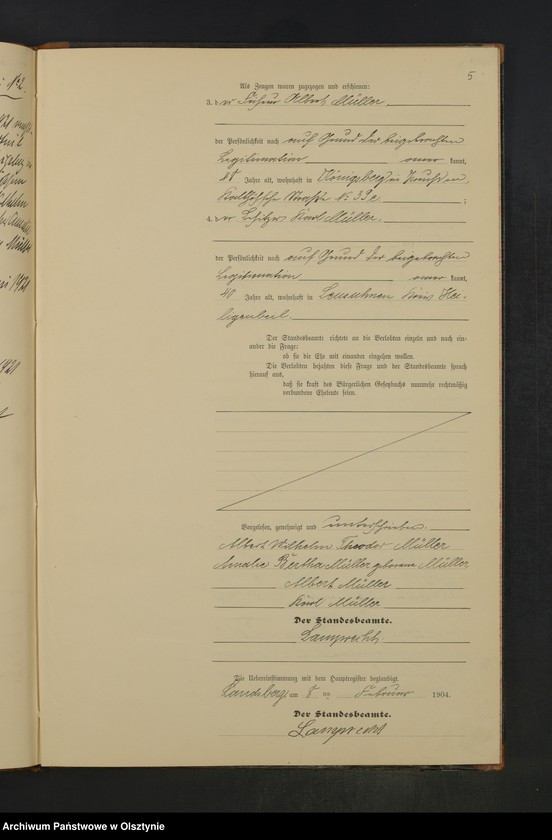 5
Als Zeugen waren zugezogen und erschienen:
3. der Albert Müller
der Persönlichkeit nach auf Grund der beigebrachten
Legitimation kannt,
Jahre alt, wohnhaft in Königsberg in Preußen,
Straße No 39a;
4. der Besitzer Karl Müller,
der Persönlichkeit nach auf Grund der beigebrachten
Legitimation kannt,
40 Jahre alt, wohnhaft in Kreis Hei-
ligenbeil.
Der Standesbeamte richtete an die Verlobten einzeln und nach ein-
ander die Frage:
ob sie die Ehe mit einander eingehen wollen.
Die Verlobten bejahten diese Frage und der Standesbeamte sprach
hierauf aus,
daß sie kraft des Bürgerlichen Gesetzbuchs nunmehr rechtmäßig
verbundene Eheleute seien.
Vorgelesen, genehmigt und unterschrieben.
Albert Wilhelm Theodor Müller
Amalie Bertha Müller geborene Müller
Albert Müller
Karl Müller
Der Standesbeamte.
Lamprecht.
Die Uebereinstimmung mit dem Hauptregister beglaubigt.
Landsberg am 8 ten Februar 1904.
Der Standesbeamte.
Lamprecht
Archiwum Państwowe w Olsztynie